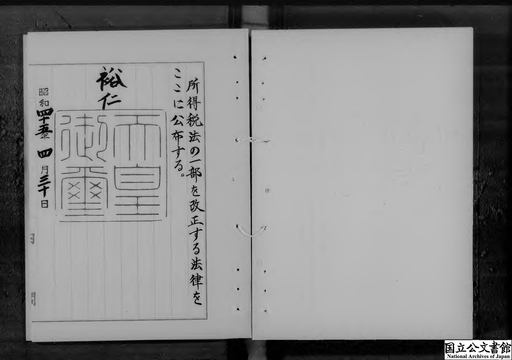 所得税法の一部を改正する法律を
ここに公布する。
裕仁
天皇
御璽
昭和四十五年四月三十日
国立公文書館
National Archives of Japan